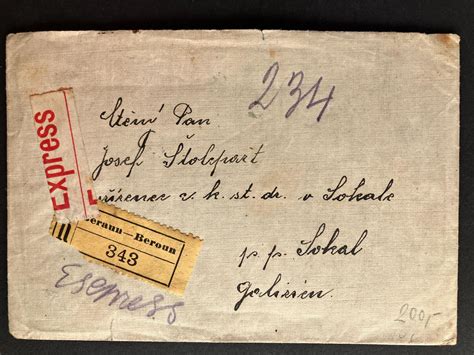 234
Ctěný Pan
Josef
c. k. st. dr. v Sokale
p. p. Sokal
Galizien.
Express
Beraun—Beroun
343
Express
200,-